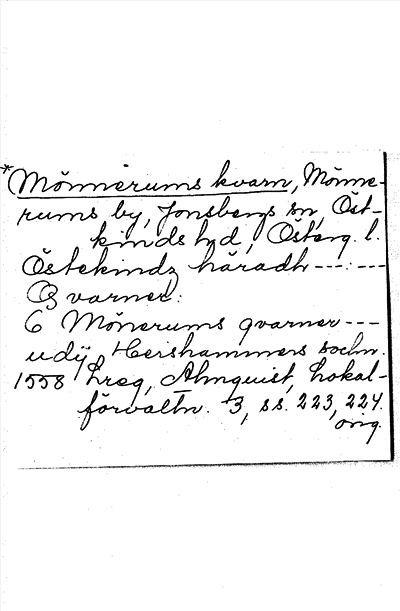 *Mönnerums kvarn, Mönne-
rums by, Jonsbergs sn, Öst-
kinds hd, Österg. l.
Östekindz häradh ---:---
Qvarner:
6 Mönerums qvarner ---
udÿ Hershammers sochn.
1558 hreg, Almquist, Lokal-
förvaltn. 3, ss. 223, 224.
orig.